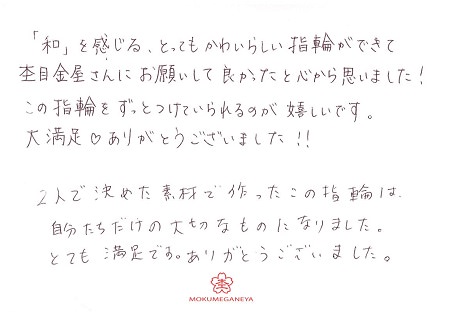 「和」を感じる、とってもかわいらしい指輪ができて
杢目金屋さんにお願いして良かったと心から思いました！
この指輪をずっとつけていられるのが嬉しいです。
大満足♡ありがとうございました!!
2人で決めた素材で作ったこの指輪は、
自分たちだけの大切なものになりました。
とても満足です。ありがとうございました。
杢
MOKUMEGANEYA